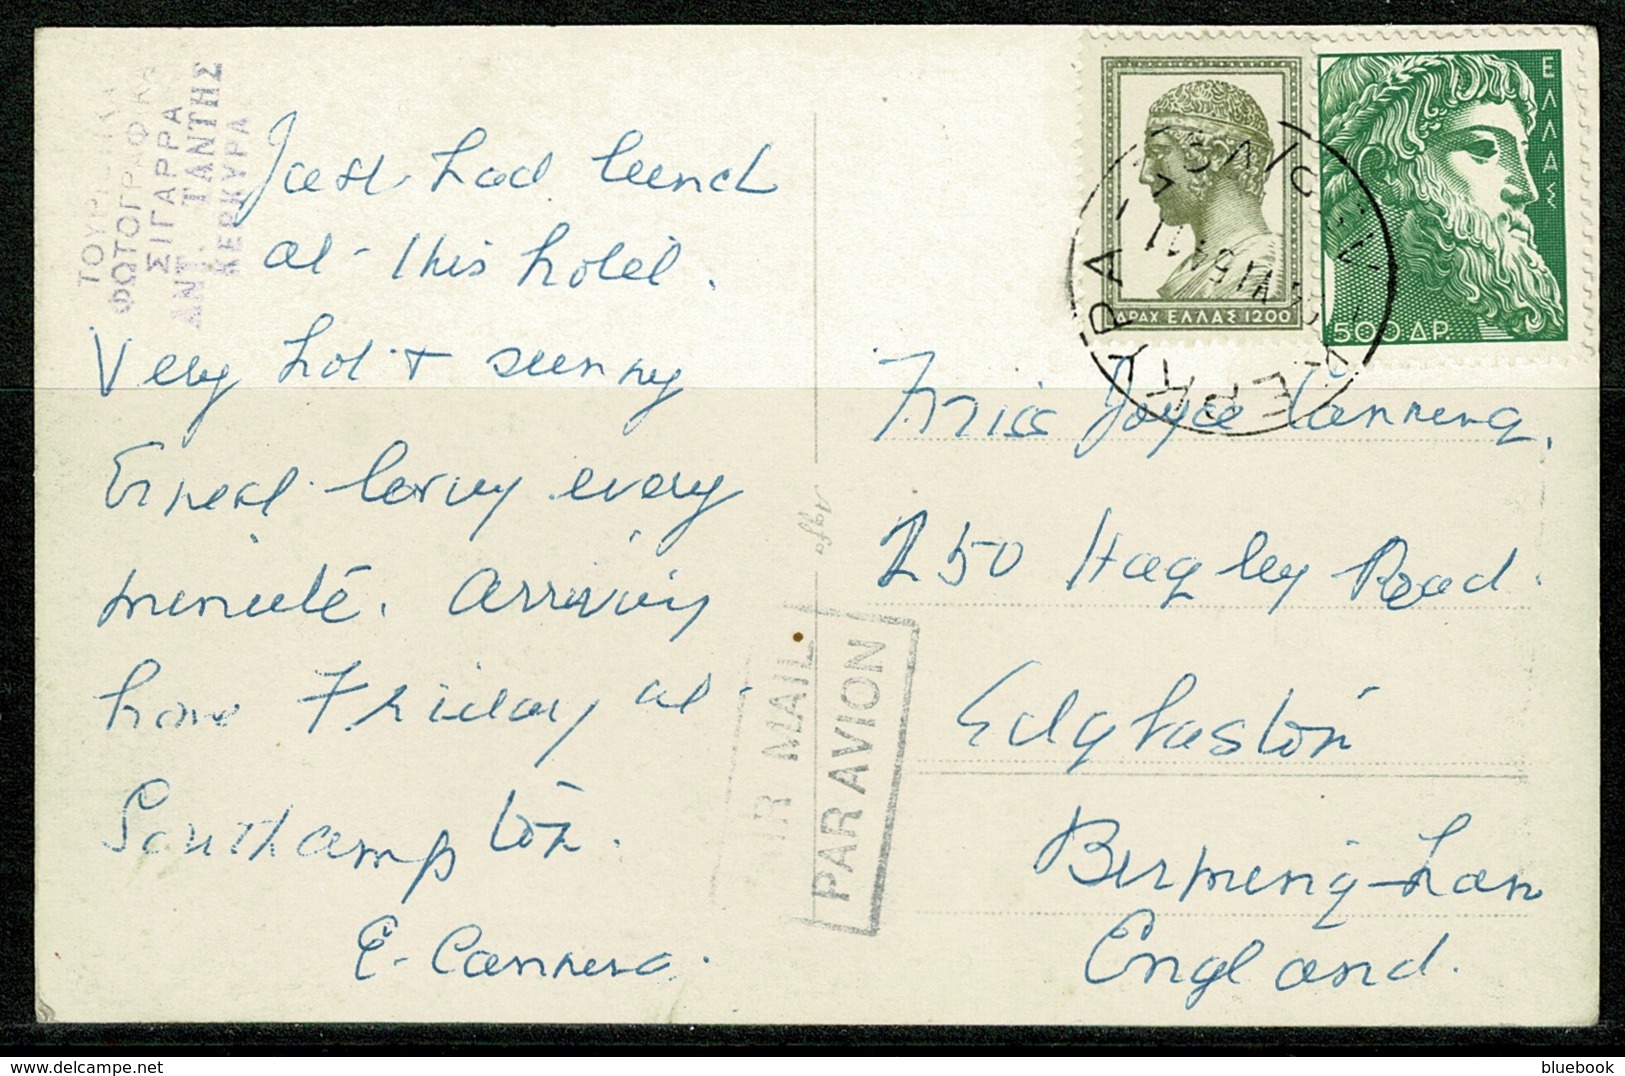 ΤΟΥΡΙΣΤΙΚΑ
ΦΩΤΟΓΡΑΦΙΚΑ
ΣΙΓΑΡΡΑ
ΑΝΤ. ΤΑΝΤΗΣ
ΚΕΡΚΥΡΑ
Just had lunch
at this hotel.
Very hot + sunny
Ernest loving every
minute. Arriving
home Friday at
Southampton.
E. Cannera.
Agfa
AIR MAIL
PAR AVION
ΔΡΑΧ ΕΛΛΑΣ 1200
ΕΛΛΑΣ
500 ΔΡ.
ΚΕΡΚΥΡΑ
Miss Joyce
250 Hagley Road.
Edgbaston
Birmingham
England.
bluebook